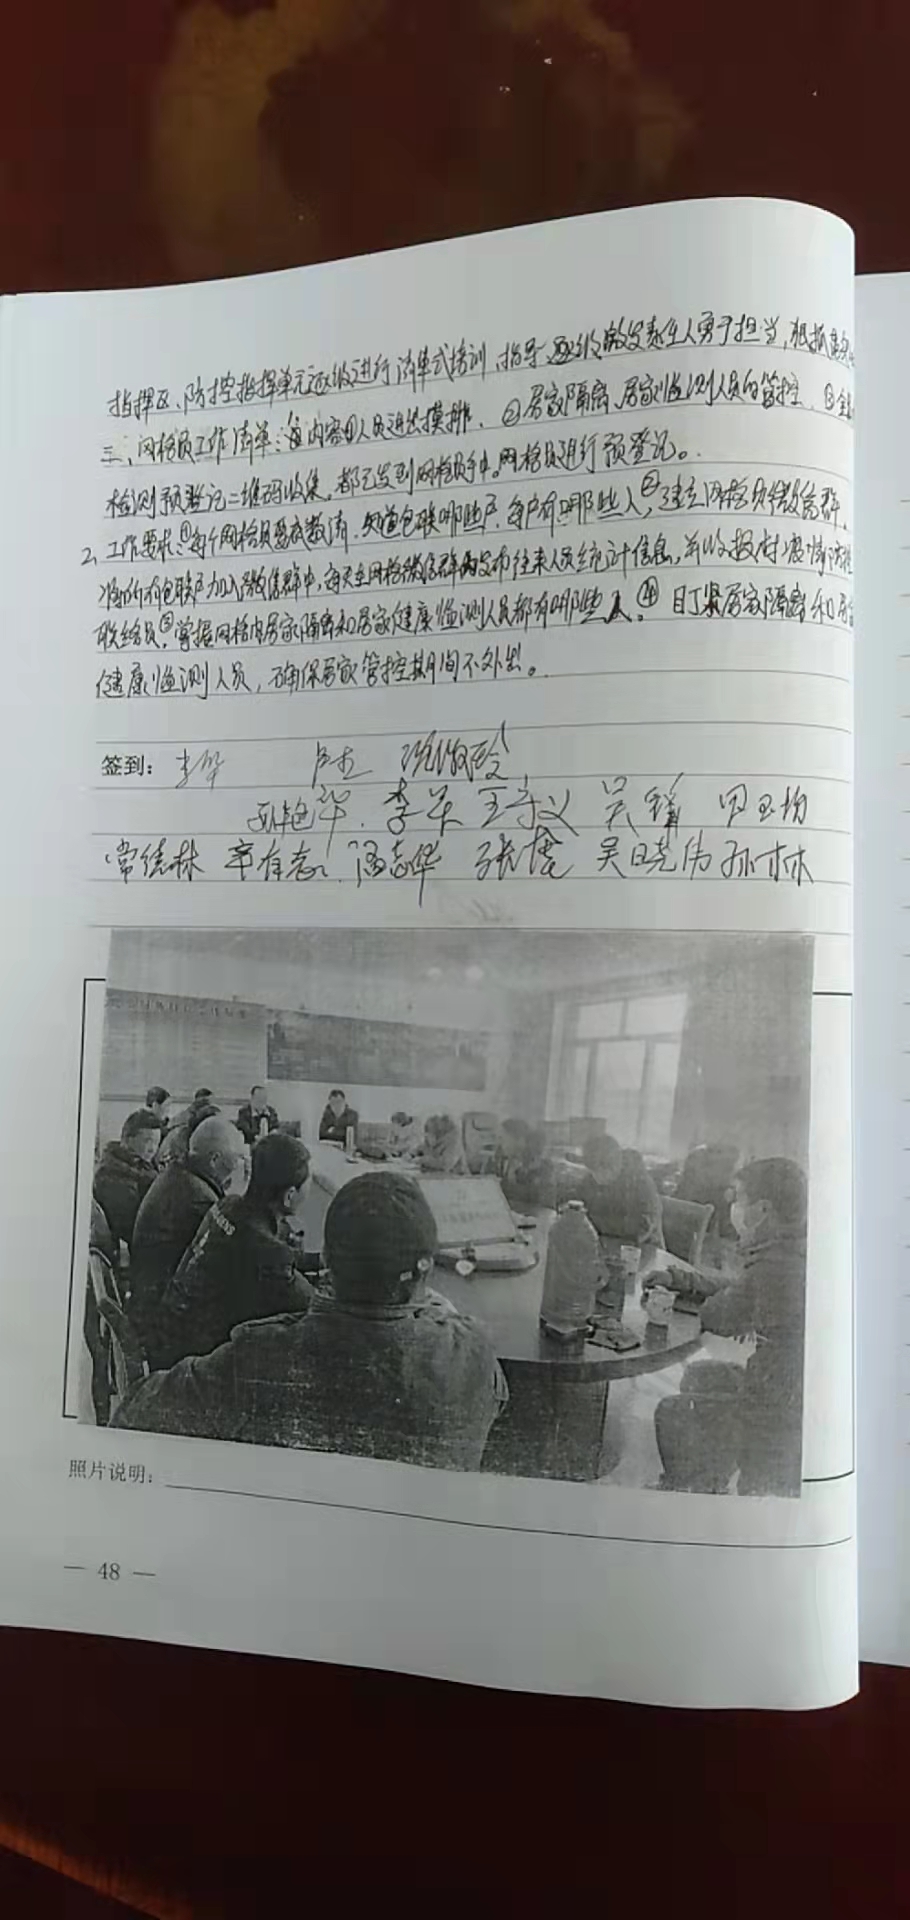 指挥区、防控指挥单元逐级进行清单式培训、指导、逐级激发责任人勇于担当,狠抓落实
三、网格员工作清单:1.内容①人员进出摸排、②居家隔离、居家监测人员的管控、③全员
检测预登记二维码收集,都已发到网格员手中。网格员进行预登记。
2、工作要求:①每个网格员要底数清,知道包联哪些户,每户有哪些人,②建立网格员微信群,
将所有包联户加入微信群中,每天在网格微信群内发布往来人员统计信息,并收报村疫情防控
联络员,③掌握网格内居家隔离和居家健康监测人员都有哪些人。④盯紧居家隔离和居家
健康监测人员,确保居家管控期间不外出。
签到:李华 卢杰
李军 王守义 吴锋
常德林 辛有志 潘志华 张博 吴晓伟 孙林
照片说明:
— 48 —